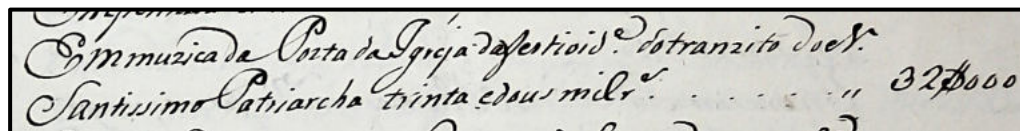 Em muzica da Porta da Igreja da festivid.e do tranzito do N.
Santissimo Patriarcha trinta e dous mil r.s . . . . . . . " 32$000